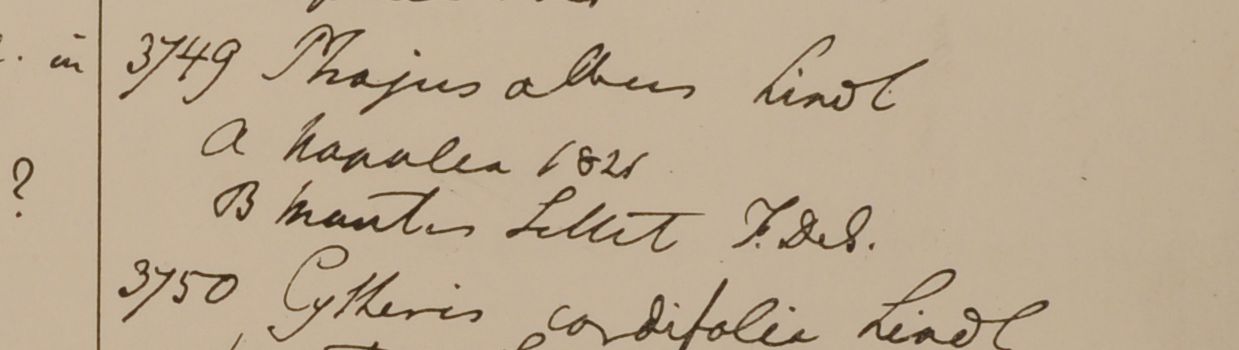 . in
3749 Phajus albus Lindl
a Napalea 1821
?
B Montes Sillet F. De S.
3750 Cytheris cordifolia Lindl